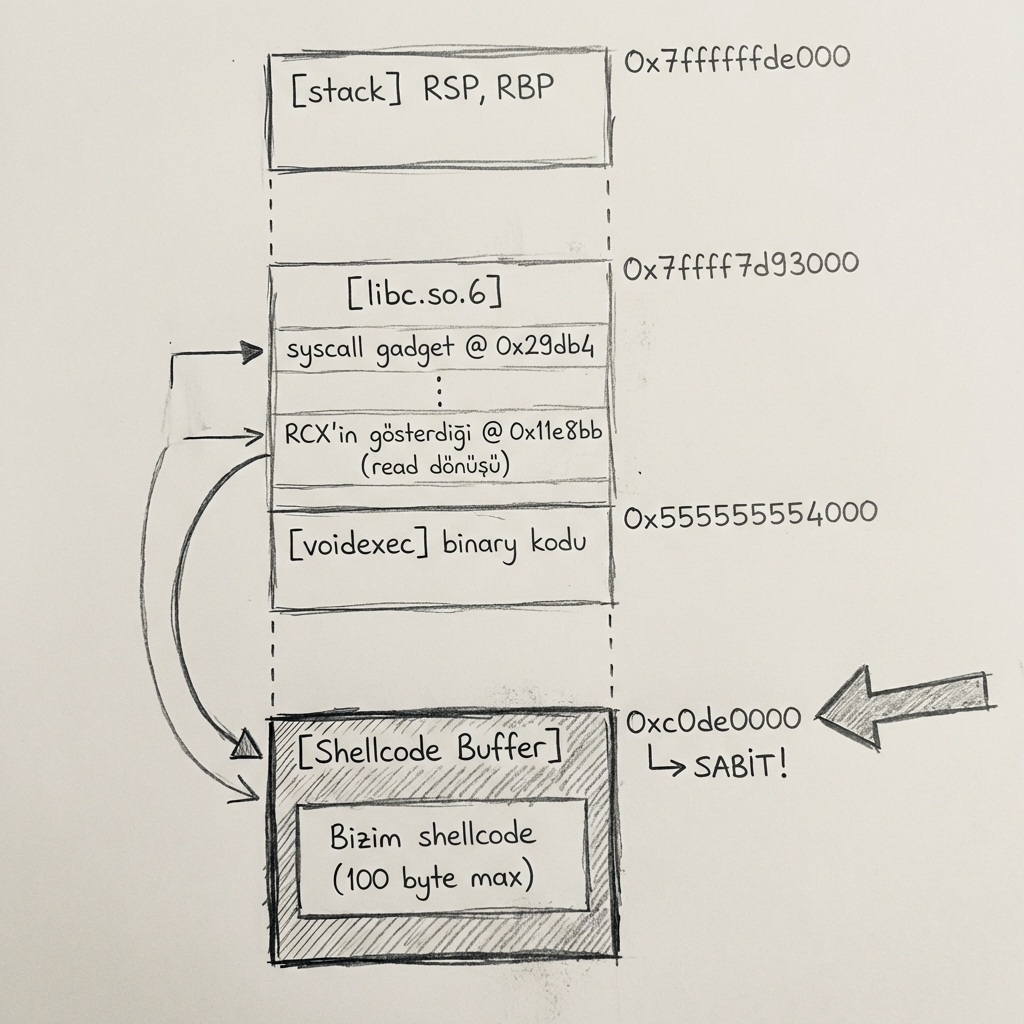 [stack] RSP, RBP
0x7ffffffde000
[libc.so.6]
0x7ffff7d93000
syscall gadget @ 0x29db4
RCX'in gösterdiği @ 0x11e8bb
(read dönüşü)
0x555555554000
[voidexec] binary kodu
0xc0de0000
SABİT!
[Shellcode Buffer]
Bizim shellcode
(100 byte max)